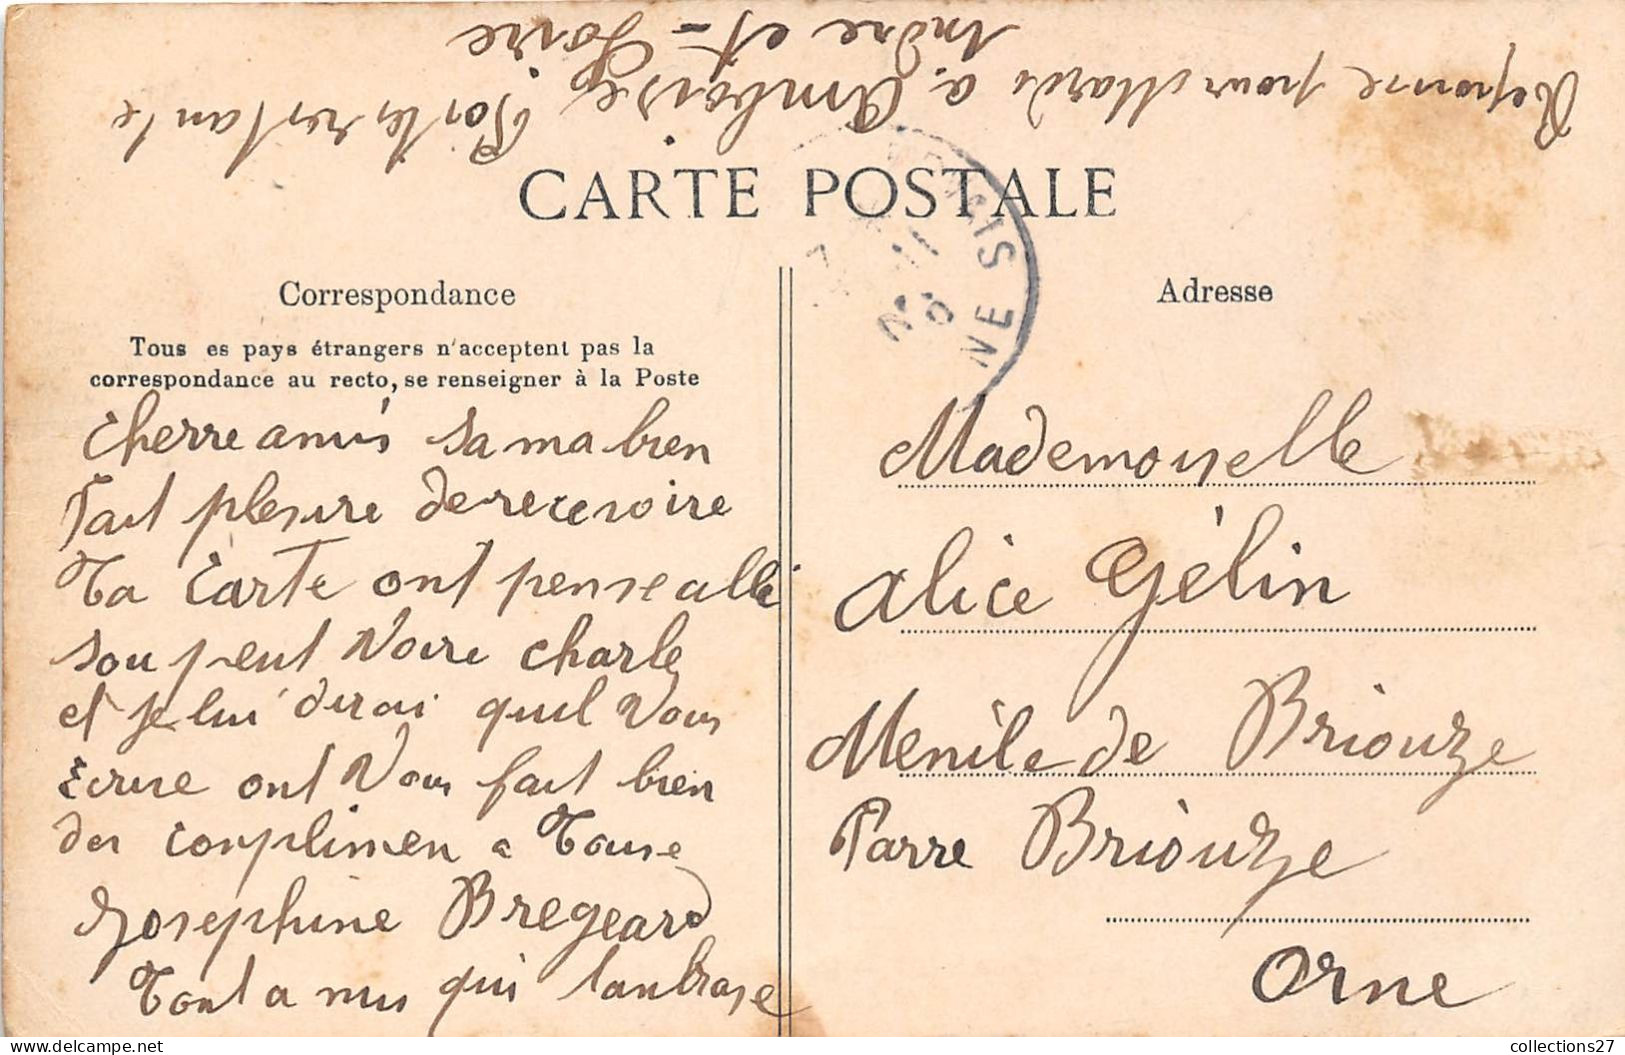 Reponse pour Mardi a Amboise Poste restante
Indre et-Loire
CARTE POSTALE
Correspondance
Tous es pays étrangers n'acceptent pas la
correspondance au recto, se renseigner à la Poste
Cherre amis sa ma bien
fait plesire de recevoire
Ta Carte ont pense allé
sou peut Voire Charle
et je lui dirai quil Vous
Ecrire ont Vous fait bien
des complimen a Touse
Josephine Bregeard
Tout a mis qui tanbrase
Adresse
NE
Mademoyelle
Alice Gélin
Menile de Briouze
Parre Briouze
Orne
collections27